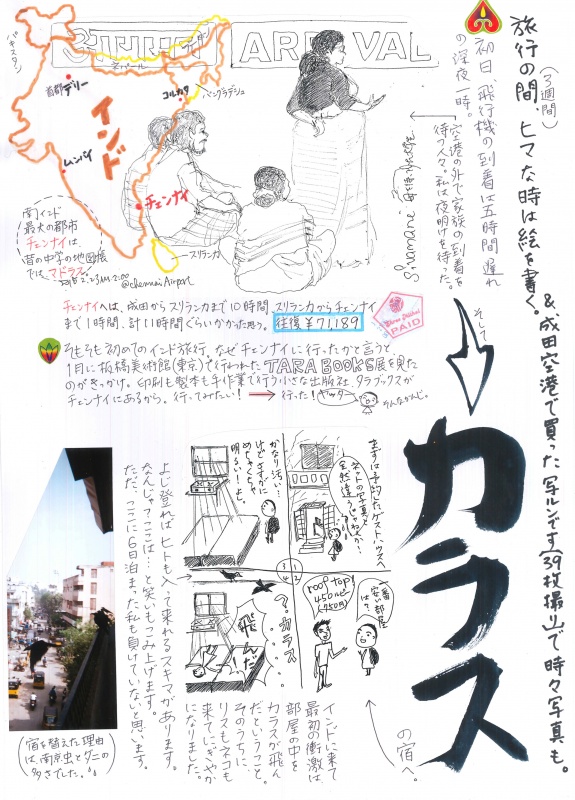 旅行の間、ヒマな時は絵を書く。
(3週間)
&成田空港で買った写ルンです(39枚撮り)で時々写真も。
初日、飛行機の到着は五時間遅れ
の深夜一時。
空港の外で家族の到着を
待つ人々。私は夜明けを待った。
Sivamani
आगमन ARRIVAL
パキスタン
ネパール
首都デリー
コルカタ
バングラデシュ
インド
ムンバイ
チェンナイ
スリランカ
南インド
最大の都市
チェンナイは、
昔の中学の地図帳
では、マドラス。
@chennai Airport
チェンナイへは、成田からスリランカまで10時間、スリランカからチェンナイ
まで1時間、計11時間ぐらいかかった思う。
往復¥71,189
PAID
そもそも初めてのインド旅行。なぜチェンナイに行ったかと言うと、
1月に板橋美術館(東京)で行われたTARA BOOKS展を見た
のがきっかけ。印刷も製本も手作業で行う小さな出版社、タラブックスが
チェンナイにあるから。行ってみたい!
→行った!
ヤッター
そんなかんじ。
そして
カラス
の宿へ。
まずは予約したゲストハウスへ
ネットの写真と
全然違うじゃねーか…
かなり汚い…
けどさすがに
めちゃくちゃ
明るい!よ。
1
2
3
4
一番
安い部屋
は?
roof top!
450ルピー
(750円)
?カラス
が…
飛
んだ!
インドに来て
最初の衝激は
部屋の中を
カラスが飛ん
だということ。
そのうちに、
リスもネコも
来てにぎやか
になりました。
よじ登ればヒトも入って来れるスキマがあります。
なんじゃここは…と笑いもこみ上げます。
ただ、ここに6日泊まった私も負けていないと思います。
(宿を替えた理由
は、南京虫とダニの
多さでした。)